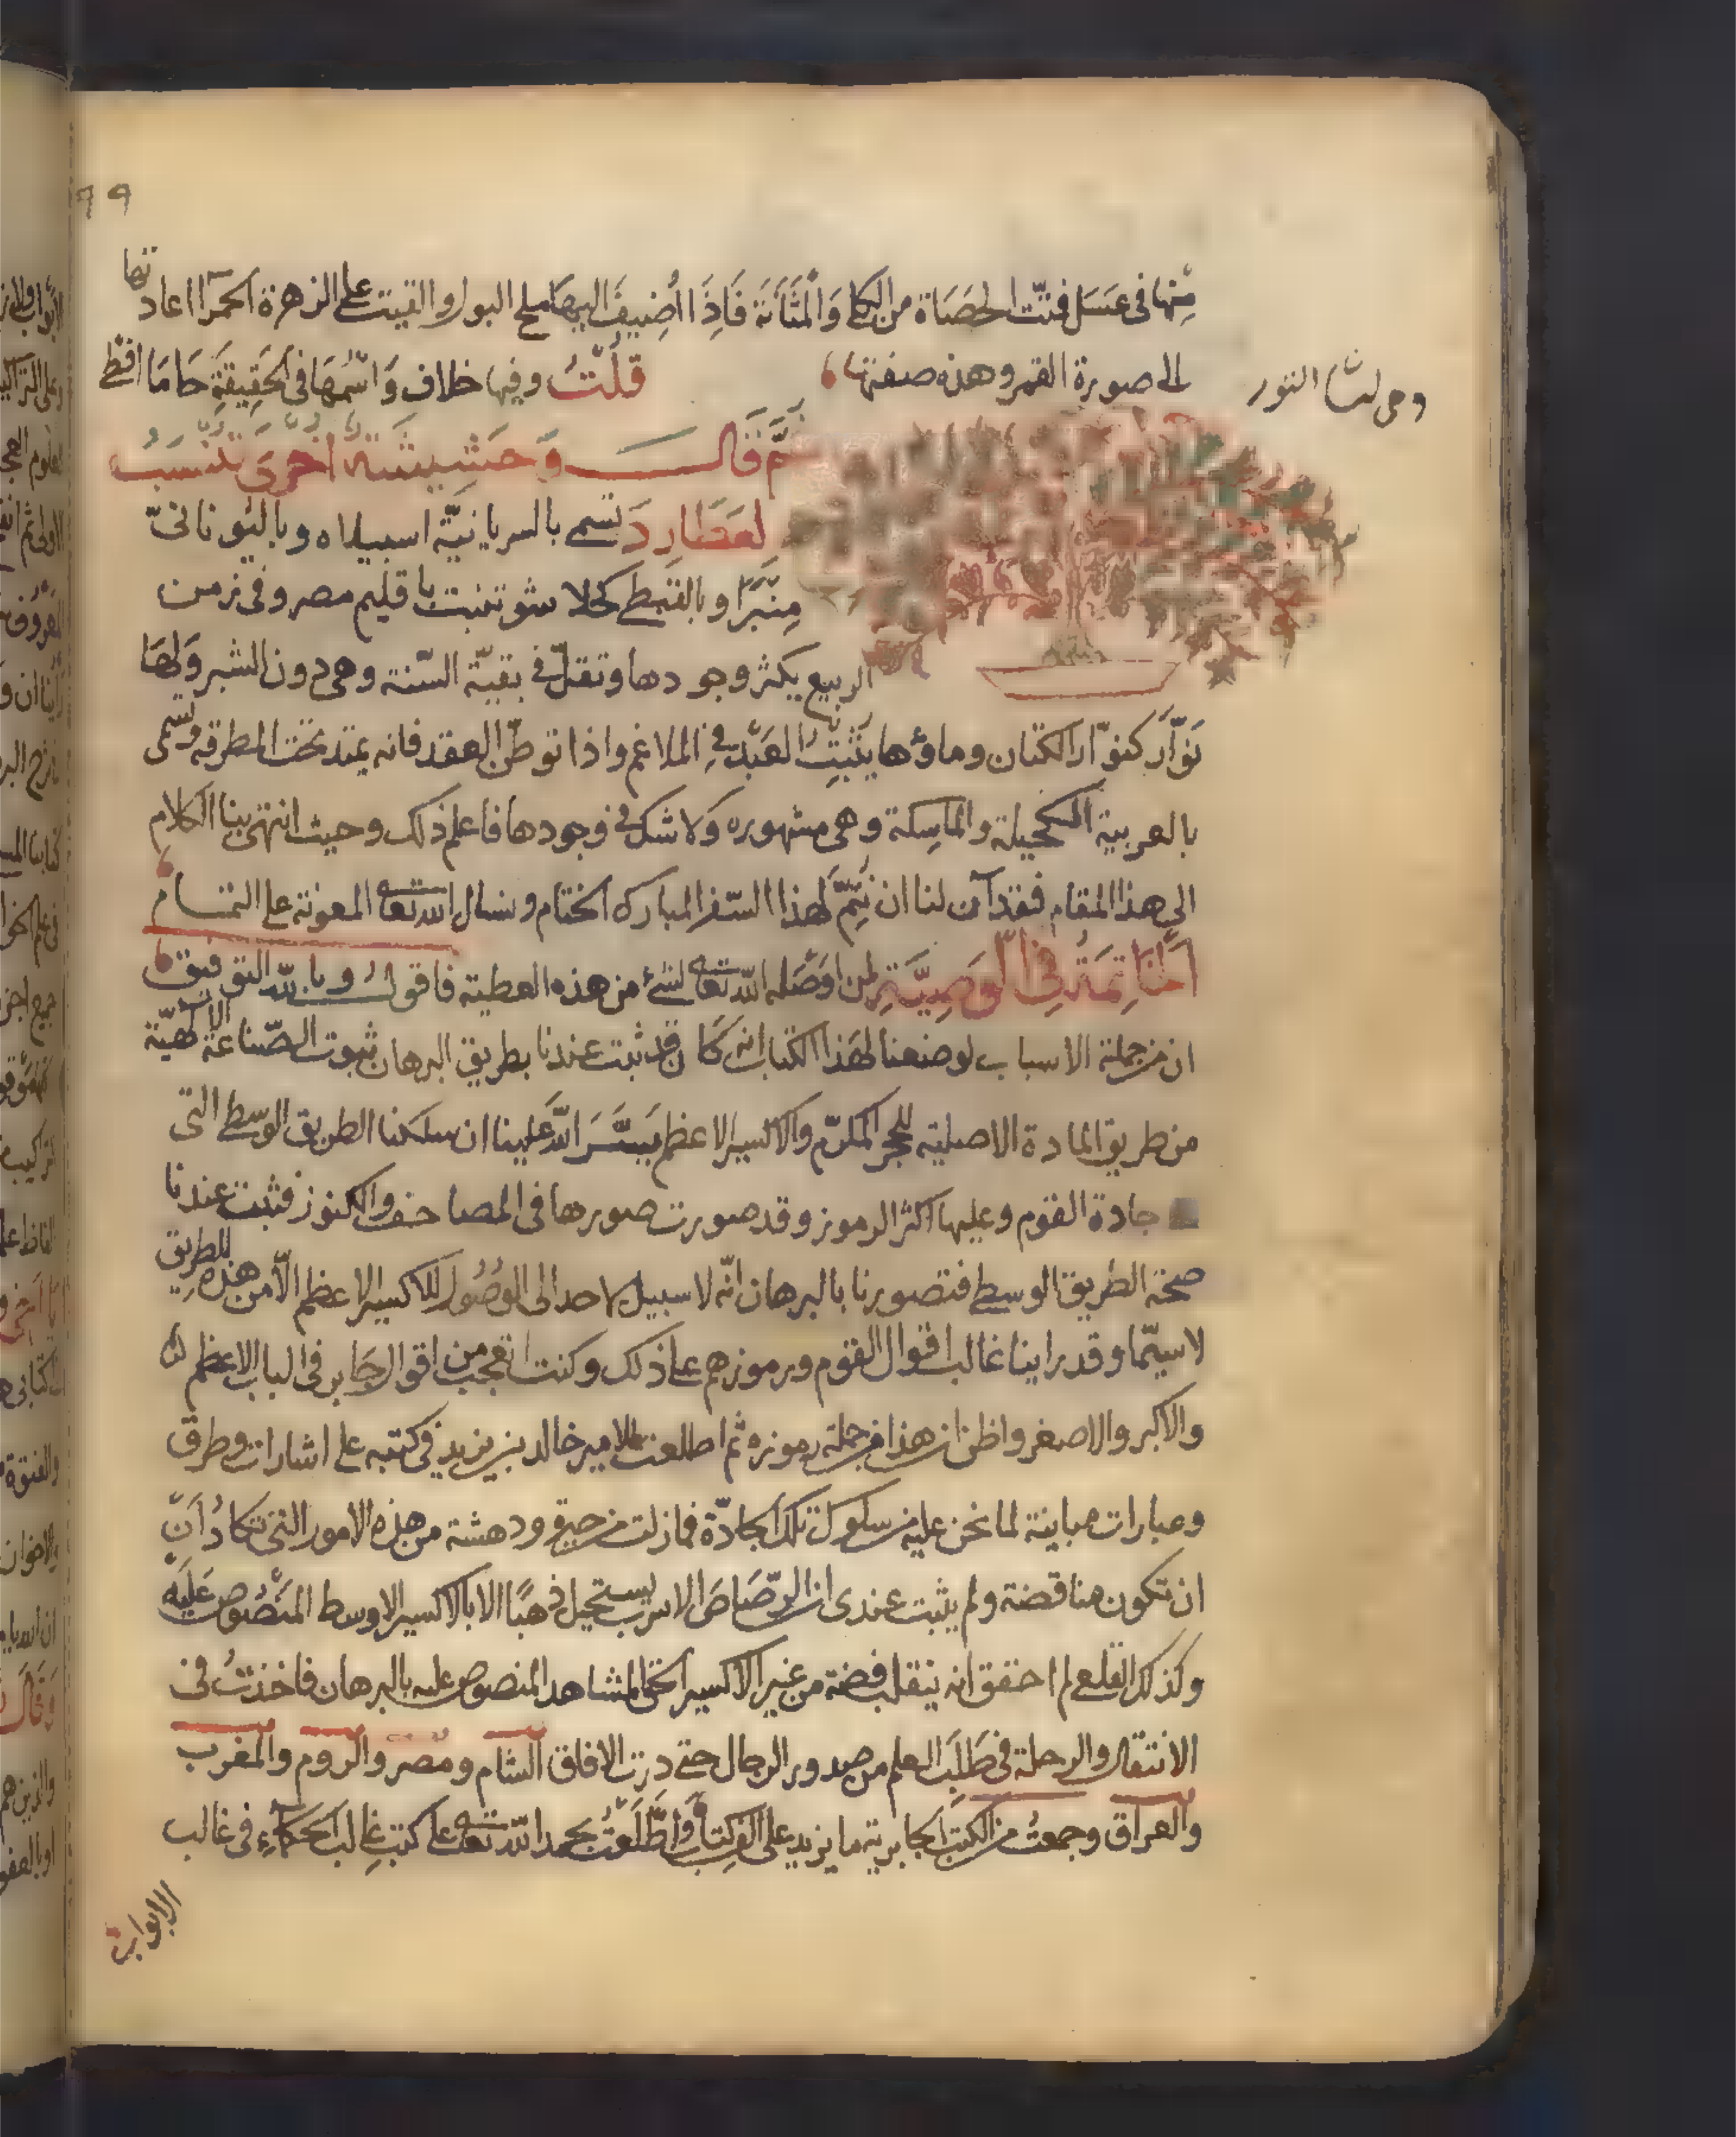 ٩٩
منها في عسل فتت الحصاة من الكلى وَالمثَانَة فَاِذَا اُضِيفَ اليهَا ملح البول والقيت على الزهرة الحمرآ اعادتها
الى صورة القمر وهذه صفتها قلتُ وفيها خلاف وَاسْمُهَا في الحَقِيقَةِ حَامَا اقطى
ثمَّ قَال وَحَشِيشَة اخرَى تنسَبُ
لعَطَارِدَ تسمى بالسريانيّة اسبيلاه وباليوناني
مِنبَرًا وبالقبطى كحلا شو تنبت باقليم مصر وفي زمن
الربيع يكثر وجودها وتقلّ في بقيّة السّنة وهى دون الشبر وَلهَا
نَوّار كنوّار الكتان وماؤها يثبّتُ العَبْد في الملاغم واذا توطّن العقد فانه يمتد تحت المطرقه وتسمى
بالعربية الكحيلة والماسِكة وهى مشهوره وَلا شك في وجودها فاعلم ذلك وحيث انتهى بنا الكلام
الى هذا المقام فقد آن لنا ان نُتِمَّ لهذا السّفر المبارك الختام ونسال الله تعالى المعونة على التمام
الخَاتِمَة فِي الْوَصِيَّةِ لمن اوصَله الله تعالى لشئ من هذه العطية فاقول وبالله التوفيق
ان من جملة الاسباب لوضعنا لهَذا الكتاب انه كان قد ثبت عندنا بطريق البرهان ثبوت الصّناعة الالهيّة
من طريق المادة الاصلية للحجر المكرّم والاكسير الاعظم يَسَّرَ اللّهُ عَلينا ان سلكنا الطريق الوسطى التى
جادة القوم وعليها اكثر الرموز وقد صورت صورها في المصاحف والكنوز فثبت عندنا
صحة الطريق الوسطى فتصورنا بالبرهان انّه لا سبيل لاحد الى الوصُول للاكسير الاعظم الاّ من هذه الطريق
لا سيّما وقد راينا غالب اقوال القوم ورموزهم على ذلك وكنت اتعجب من اقوال جابر في الباب الاعظم
والاكبر والاصغر واظن ان هذا من جملة رموزه ثم اطلعت للامير خالد بن يزيد في كتبه على اشارات وطرق
وعبارات مباينة لما نحن عليه من سلوك تلك الجادّة فما زلت في حيرة ودهشة من هذه الامور التى تكادُ اَن
ان تكون مناقضة ولم يثبت عندى ان الرّصَاصَ الاسرب يستحيل ذهبًا الا بالاكسير الاوسط المنصُوص عَليَه
وكذلك القلعى لم احقق انه ينقلب فضة من غير الاكسير الحق المشاهد المنصوص عليه بالبرهان فاخذتُ في
الانتقال والرحلة في طَلَبِ العلم من صدور الرجال حتى درت الافاق الشام ومصر والروم والمغرب
والعراق وجمعتُ من الكتب الجابرية ما يزيد على الف كتاب وَاطَّلَعْتُ بحمد الله تعالى على كتبِ غالب الحكمآءِ في غالب
الابواب